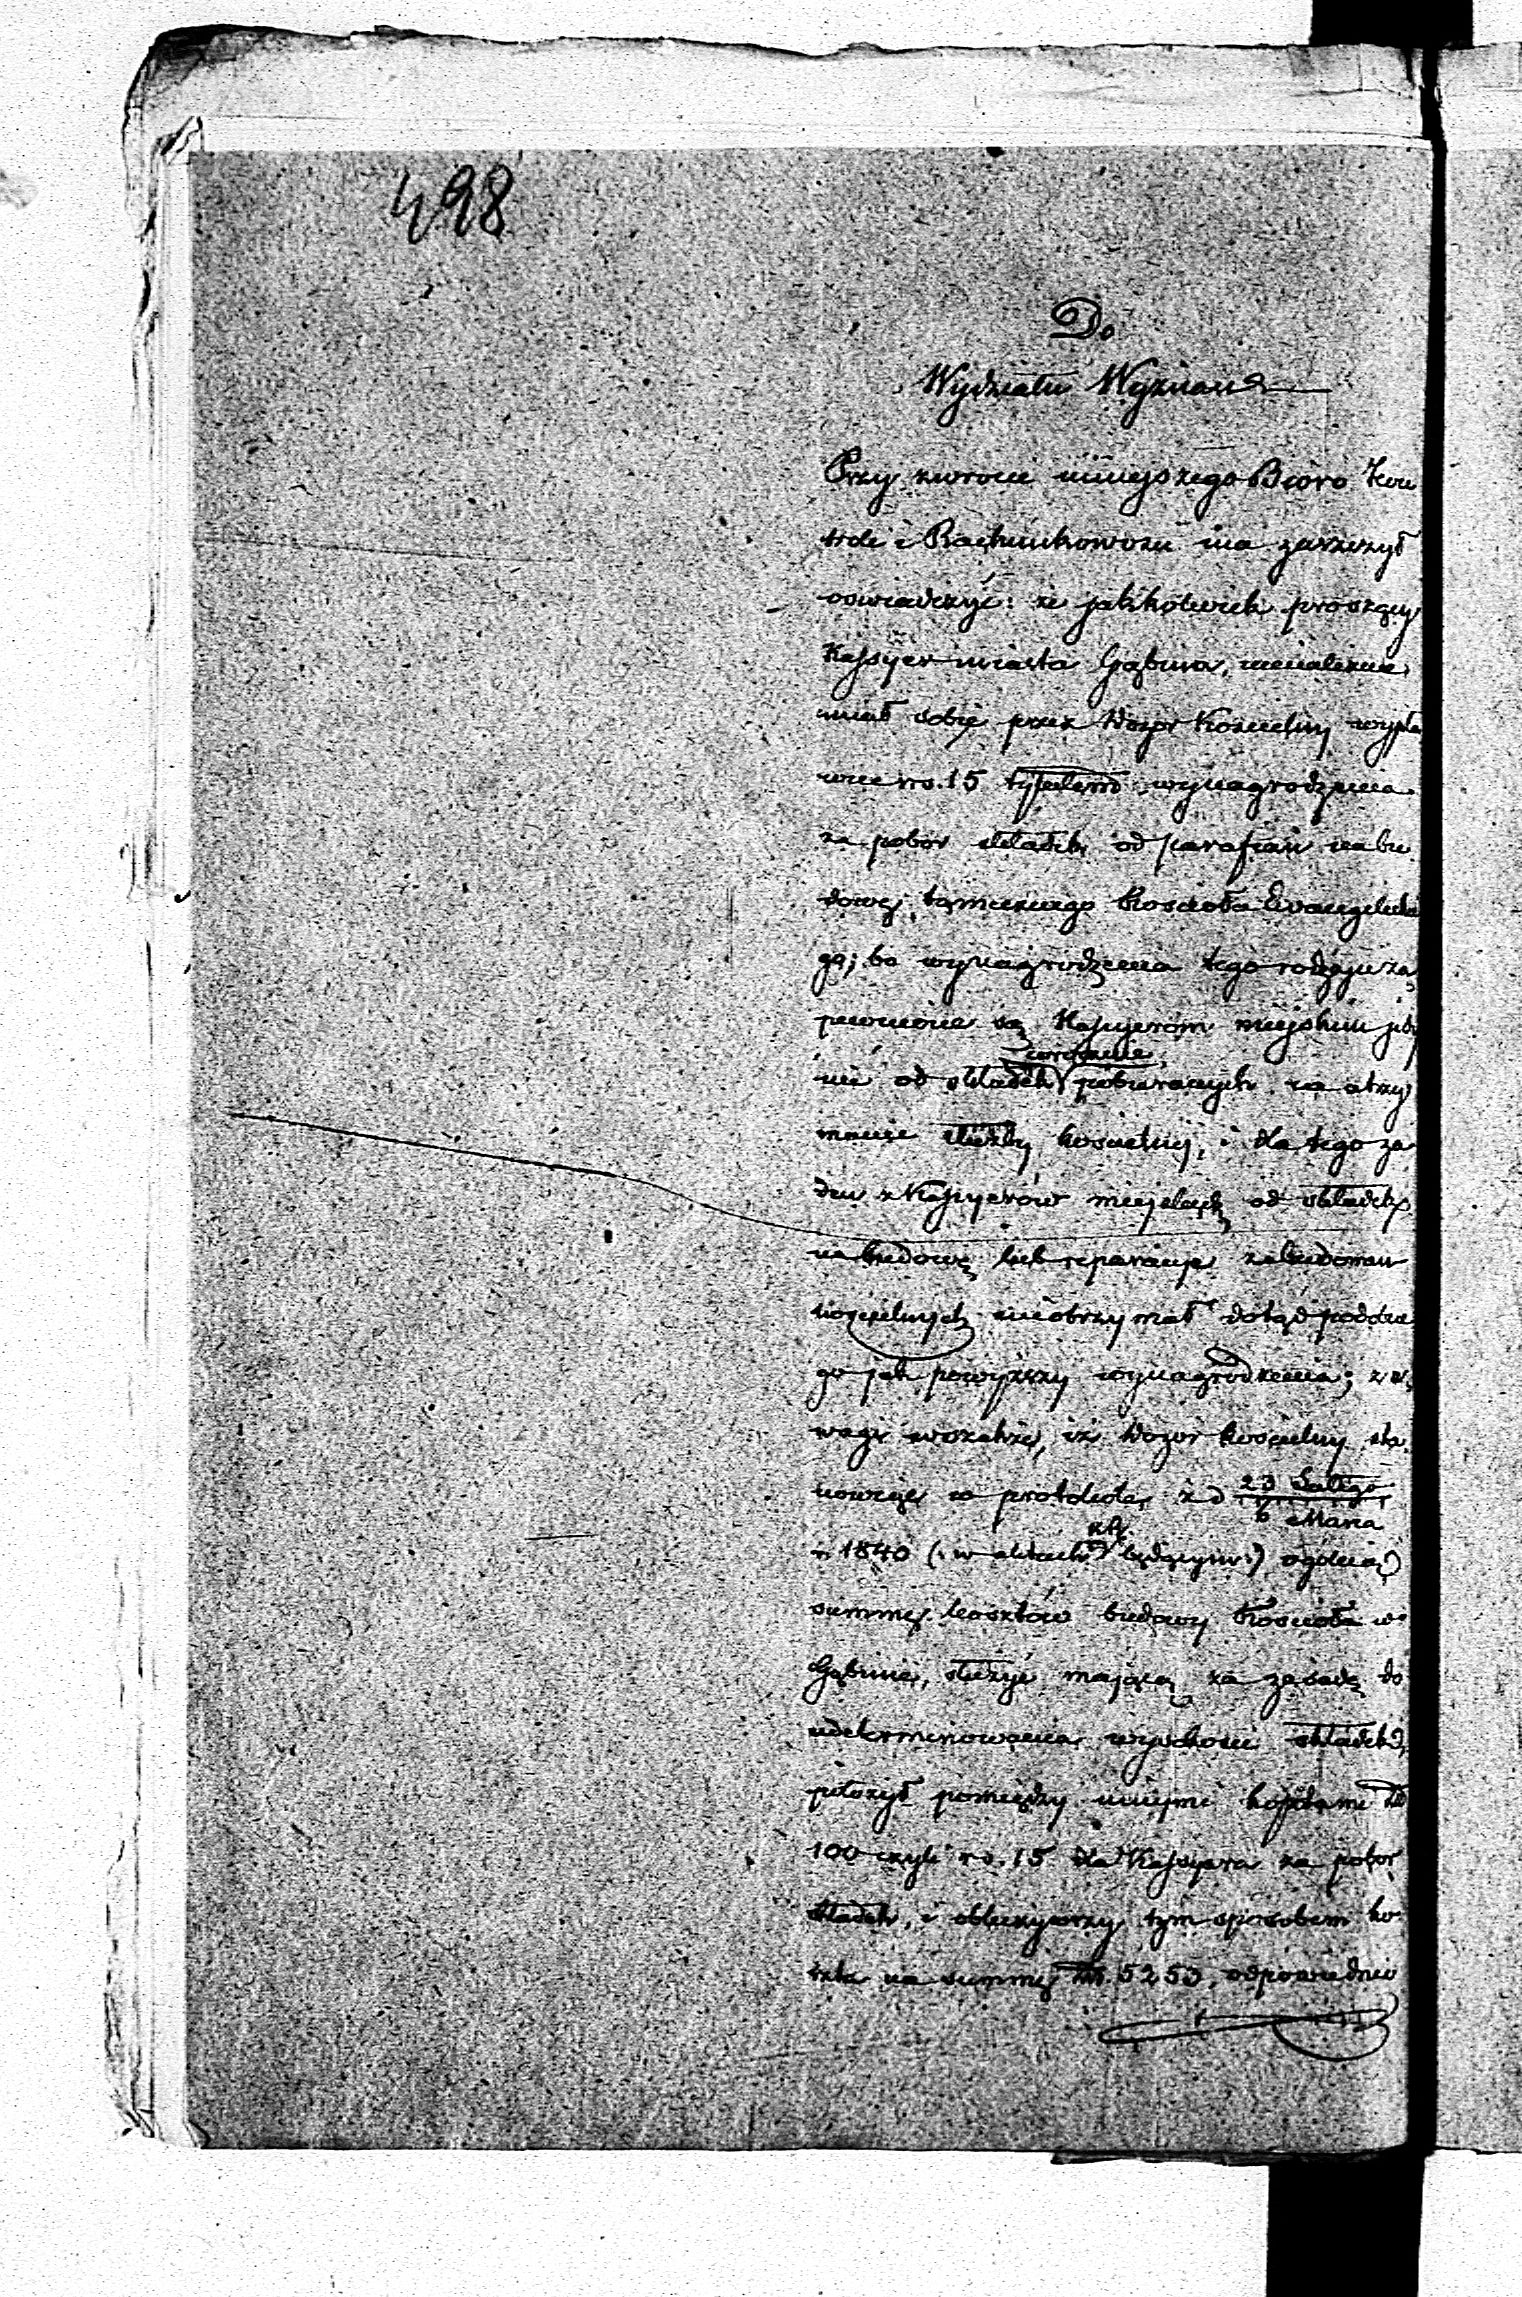 498
Do
Wydziału Wyznań
Przy zwrocie niniejszego Bióro Kon
troli i Rachunkowości ma zaszczyt
oświadczyć: że jakkolwiek proszący
Kassyer miasta Gąbina, nienależnie
miał sobie przez Dozór Kościelny wypła
cone rs. 15 tytułem wynagrodzenia
za pobór składek od parafian na bu
dowę tamecznego Kościoła Ewangelickie
go; bo wynagrodzenia tego rodzaju za
pewnione są Kassyerom miejskim jedy
nie od składek pobieranych na utrzy
manie służby kościelnej, i dla tego ża
den z Kassyerów miejskich od składek
na budowę lub reparacye zabudowań
kościelnych nie otrzymał dotąd podobne
go jak powyższy wynagrodzenia; z u
wagi wszakże, iż Dozór kościelny sta
nowiąc w protokule z d 23 Lutego
6 Marca
r. 1840 (: w aktach będącym:) ogólną
summę kosztów budowy Kościoła w
Gąbinie, służyć mającą za zasadę do
udeterminowania wysokości składek,
położył pomiędzy innymi kosztami Złp
100 czyli rs. 15 dla Kassyera za pobór
składek, i obliczywszy tym sposobem ko
szta na summę Złp 5253, odpowiednio